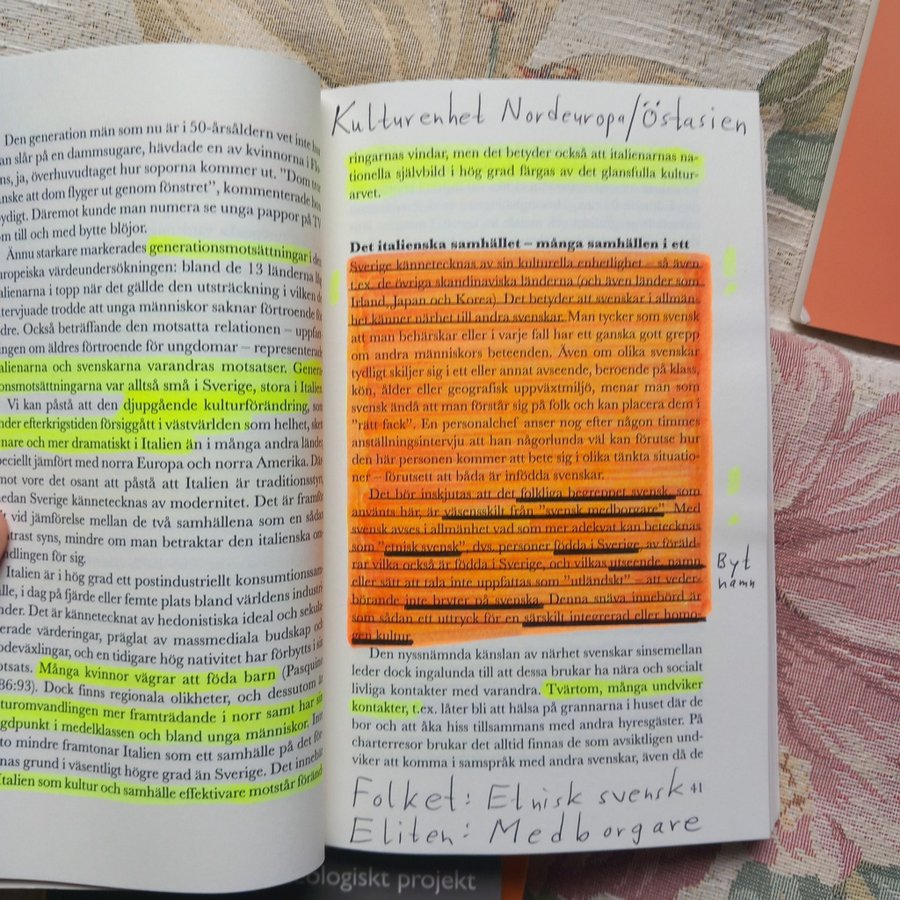 Den generation män som nu är i 50-årsåldern vet inte hur
man slår på en dammsugare, hävdade en av kvinnorna i
ja, överhuvudtaget hur soporna kommer ut. ”Dom tror
kanske att dom flyger ut genom fönstret”, kommenterade hon
Däremot kunde man numera se unga pappor på TV
som till och med bytte blöjor.
Ännu starkare markerades generationsmotsättningar i den
europeiska värdeundersökningen: bland de 13 länderna
italienarna i topp när det gällde den utsträckning i vilken de
intervjuade trodde att unga människor saknar förtroende för
äldre. Också beträffande den motsatta relationen – uppfatt-
ningen om äldres förtroende för ungdomar – representerade
italienarna och svenskarna varandras motsatser. Genera-
tionsmotsättningarna var alltså små i Sverige, stora i Italien.
Vi kan påstå att den djupgående kulturförändring, som
under efterkrigstiden försiggått i västvärlden som helhet, sker
senare och mer dramatiskt i Italien än i många andra länder,
speciellt jämfört med norra Europa och norra Amerika. Där-
emot vore det osant att påstå att Italien är traditionsstyrt,
medan Sverige kännetecknas av modernitet. Det är framför
vid jämförelse mellan de två samhällena som en sådan
kontrast syns, mindre om man betraktar den italienska om-
vandlingen för sig.
Italien är i hög grad ett postindustriellt konsumtionssam-
hälle, i dag på fjärde eller femte plats bland världens industri-
länder. Det är kännetecknat av hedonistiska ideal och sekula-
riserade värderingar, präglat av massmediala budskap och
modeväxlingar, och en tidigare hög nativitet har förbytts i sin
motsats. Många kvinnor vägrar att föda barn (Pasquino
1986:93). Dock finns regionala olikheter, och dessutom är
kulturomvandlingen mer framträdande i norr samt har sin
tyngdpunkt i medelklassen och bland unga människor.
mindre framtonar Italien som ett samhälle på det
grund i väsentligt högre grad än Sverige. Det innebär
Italien som kultur och samhälle effektivare motstår föränd-
Kulturenhet Nordeuropa/Östasien
ringarnas vindar, men det betyder också att italienarnas na-
tionella självbild i hög grad färgas av det glansfulla kultur-
arvet.
Det italienska samhället – många samhällen i ett
Sverige kännetecknas av sin kulturella enhetlighet – så även
t.ex. de övriga skandinaviska länderna (och även länder som
Irland, Japan och Korea). Det betyder att svenskar i allmän-
het känner närhet till andra svenskar. Man tycker som svensk
att man behärskar eller i varje fall har ett ganska gott grepp
om andra människors beteenden. Även om olika svenskar
tydligt skiljer sig i ett eller annat avseende, beroende på klass,
kön, ålder eller geografisk uppväxtmiljö, menar man som
svensk ändå att man förstår sig på folk och kan placera dem i
”rätt fack”. En personalchef anser nog efter någon timmes
anställningsintervju att han någorlunda väl kan förutse hur
den här personen kommer att bete sig i olika tänkta situatio-
ner – förutsett att båda är infödda svenskar.
Det bör inskjutas att det folkliga begreppet svensk, som
använts här, är väsensskilt från ”svensk medborgare”. Med
svensk avses i allmänhet vad som mer adekvat kan betecknas
som ”etnisk svensk”, dvs. personer födda i Sverige, av föräld-
rar vilka också är födda i Sverige, och vilkas utseende, namn
eller sätt att tala inte uppfattas som ”utländskt” – att veder-
börande inte bryter på svenska. Denna snäva innebörd är
som sådan ett uttryck för en särskilt integrerad eller homo-
gen kultur.
Byt
namn
Den nyssnämnda känslan av närhet svenskar sinsemellan
leder dock ingalunda till att dessa brukar ha nära och socialt
livliga kontakter med varandra. Tvärtom, många undviker
kontakter, t.ex. låter bli att hälsa på grannarna i huset där de
bor och att åka hiss tillsammans med andra hyresgäster. På
charterresor brukar det alltid finnas de som avsiktligen und-
viker att komma i samspråk med andra svenskar, även då de
41
Folket: Etnisk svensk
Eliten: Medborgare
ologiskt projekt